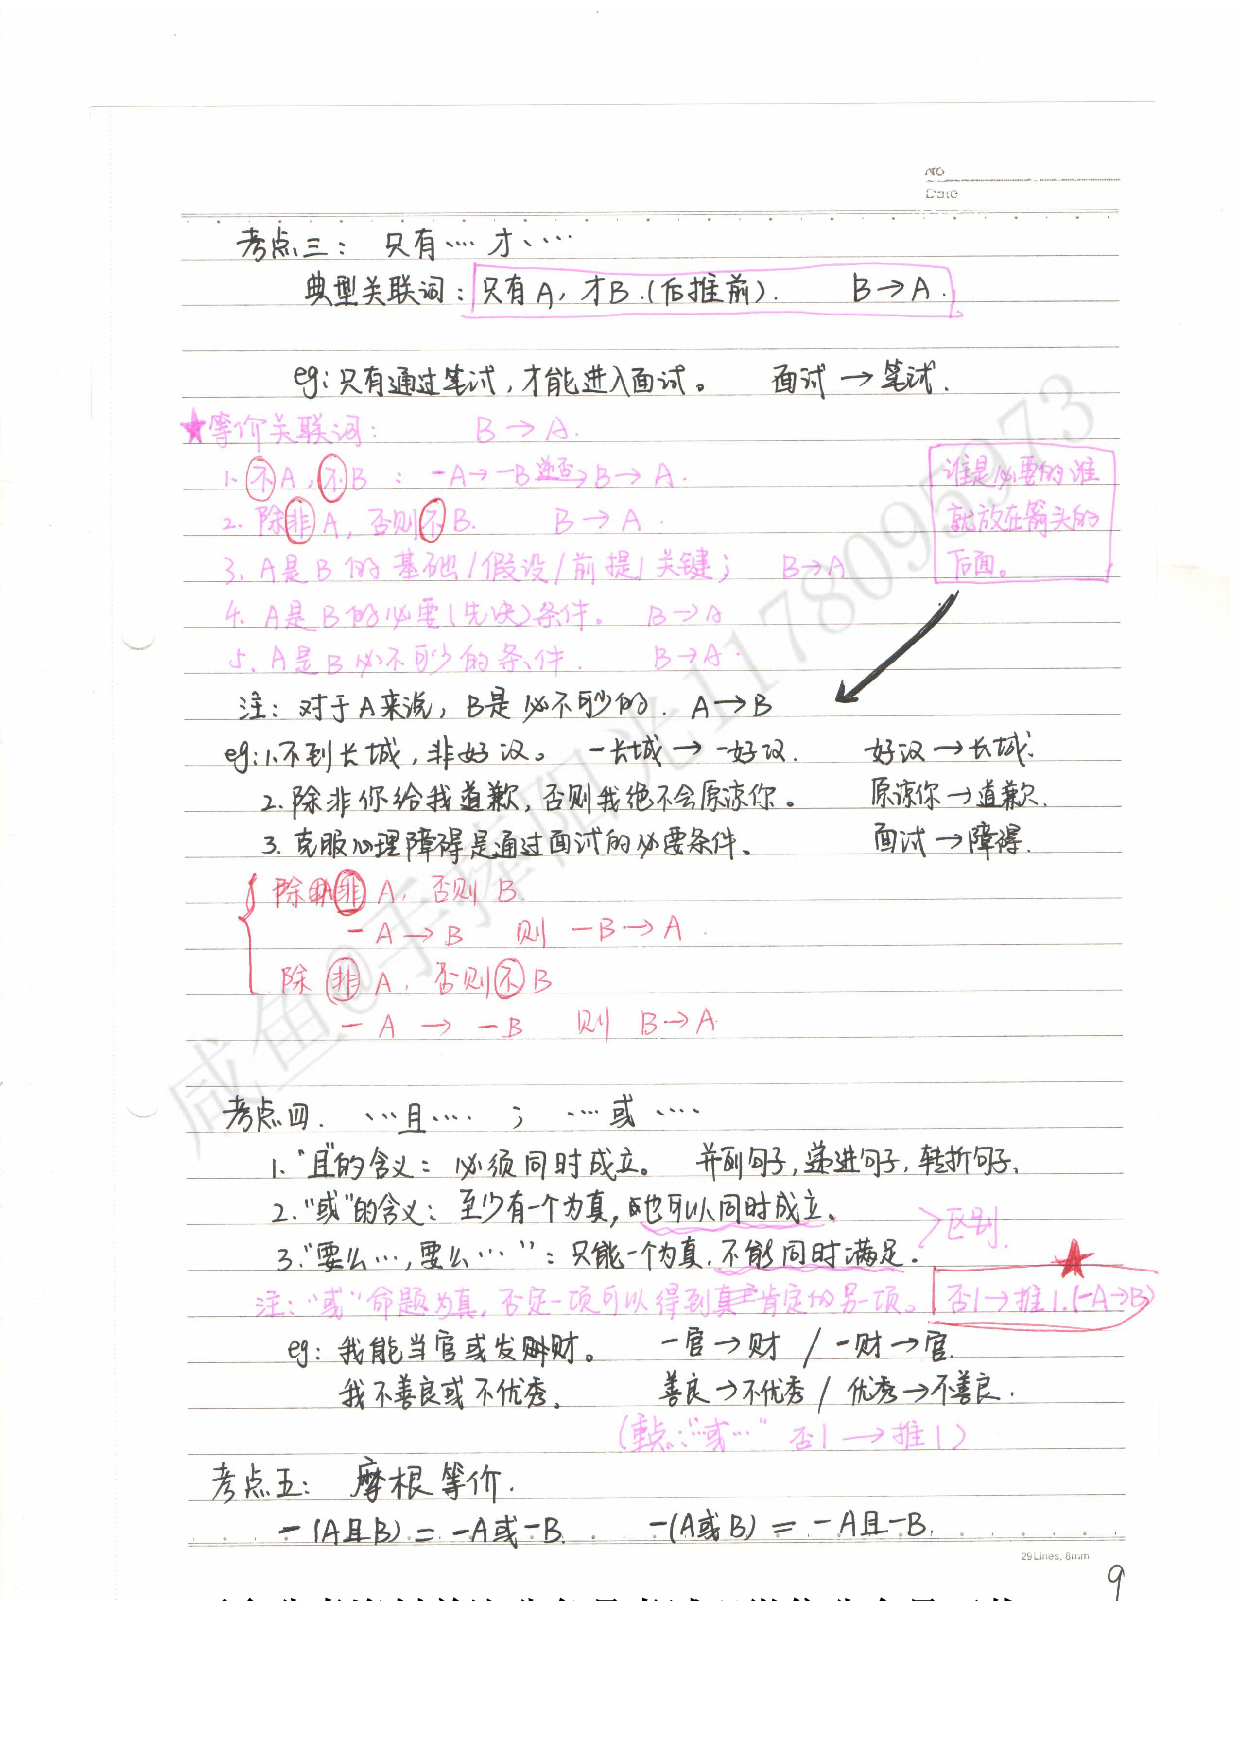 NO
Date
考点三： 只有…… 才……
典型关联词：只有A，才B.(后推前). B→A.
eg：只有通过笔试，才能进入面试。 面试→笔试.
★等价关联词： B→A.
1.不A，不B ： －A→－B 逆否→ B→A.
2.除非A，否则不B. B→A.
3.A是B的基础/假设/前提/关键； B→A
4.A是B的必要(先决)条件。 B→A
5.A是B必不可少的条件. B→A.
谁是必要的谁
就放在箭头的
后面。
注：对于A来说，B是必不可少的. A→B
eg：1.不到长城，非好汉。 －长城→－好汉. 好汉→长城.
2.除非你给我道歉，否则我绝不会原谅你。 原谅你→道歉.
3.克服心理障碍是通过面试的必要条件、 面试→障碍.
除非A，否则B
－A→B 则 －B→A.
除非A，否则不B
－A → －B 则 B→A
考点四. …且…… ； …或……
1.“且”的含义：必须同时成立。 并列句子，递进句子，转折句子、
2.“或”的含义：至少有一个为真，也可以同时成立、
3.“要么…，要么…”：只能一个为真，不能同时满足。
>区别.
注：“或”命题为真，否定一项可以得到肯定的另一项。 否1→推1.(－A→B)
★
eg：我能当官或发财。 －官→财 / －财→官.
我不善良或不优秀、 善良→不优秀 / 优秀→不善良.
(重点：“…或…” 否1→推1)
考点五： 摩根等价.
－(A且B)＝－A或－B. －(A或B)＝－A且－B.
29 Lines, 8mm
9
咸鱼@手捧阳光1178095973